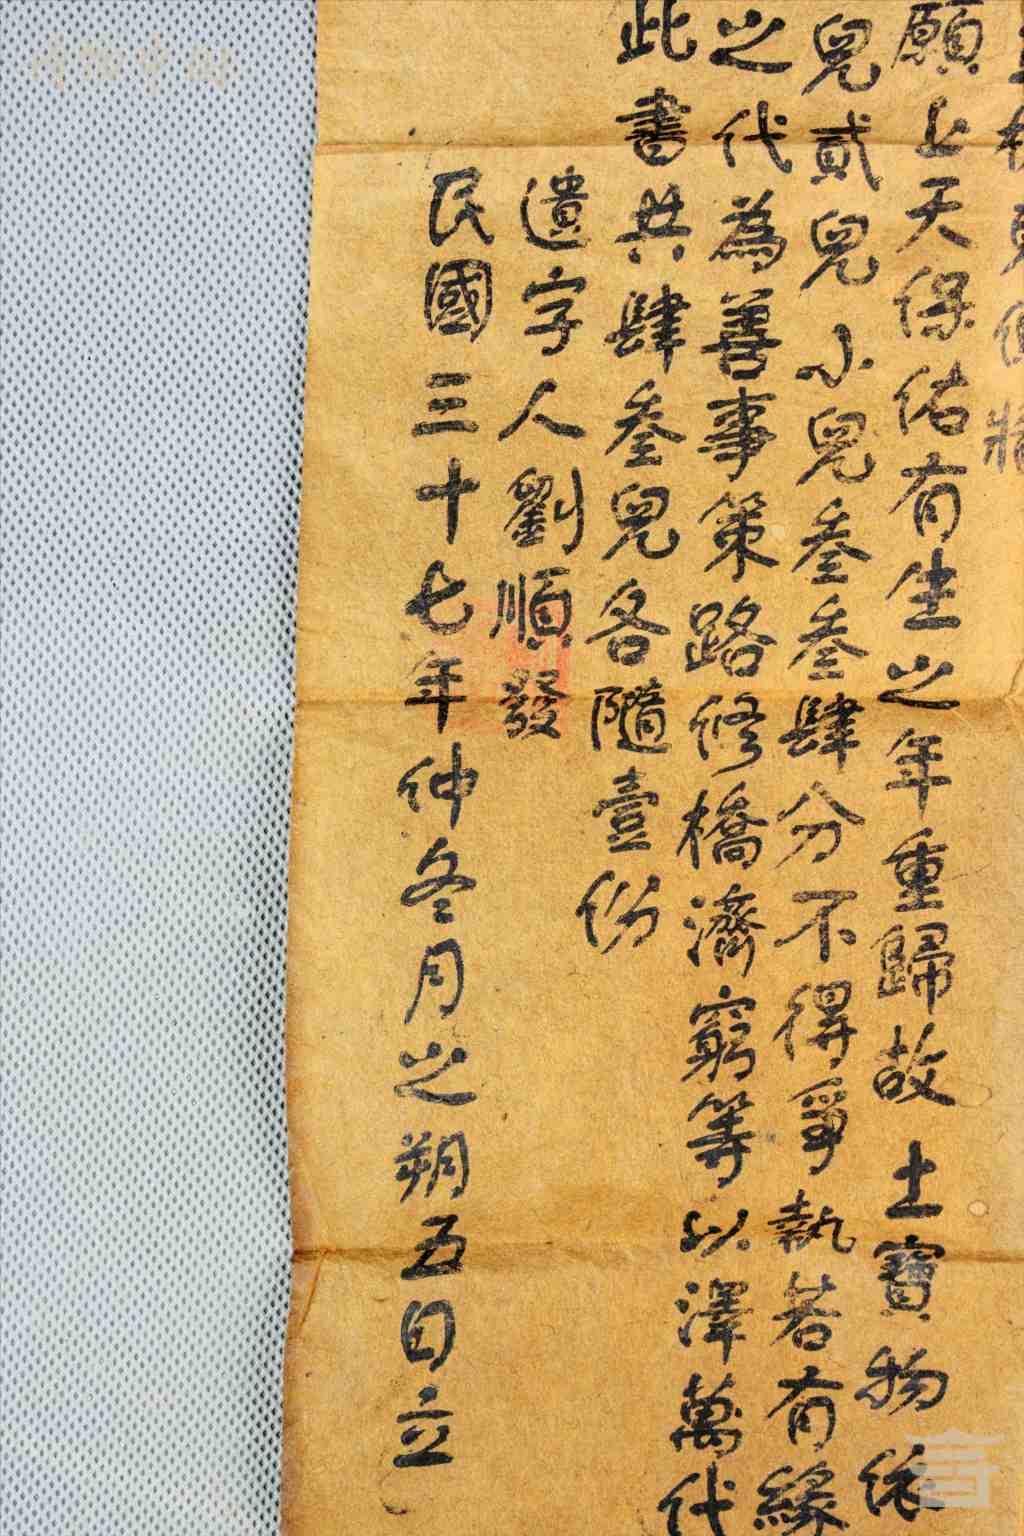 願上天保佑有生之年重歸故土寶物依
兒貳兒小兒叁叁肆分不得爭執若有緣
之代為善事築路修橋濟窮等以澤萬代
此書共肆叁兒各隨壹份
遺字人劉順發
民國三十七年仲冬月之朔五日立